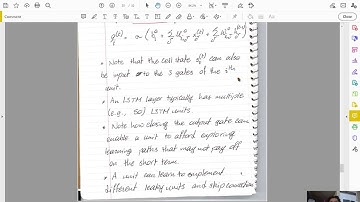 • Note that the cell state s_i^(t) can also
be input to the 3 gates of the i th
unit.
• An LSTM layer typically has multiple
(e.g., 50) LSTM units.
• Note how closing the output gate can
enable a unit to afford exploring
learning paths that may not pay off
on the short term.
• A unit can learn to implement
different leaky units and skip connection